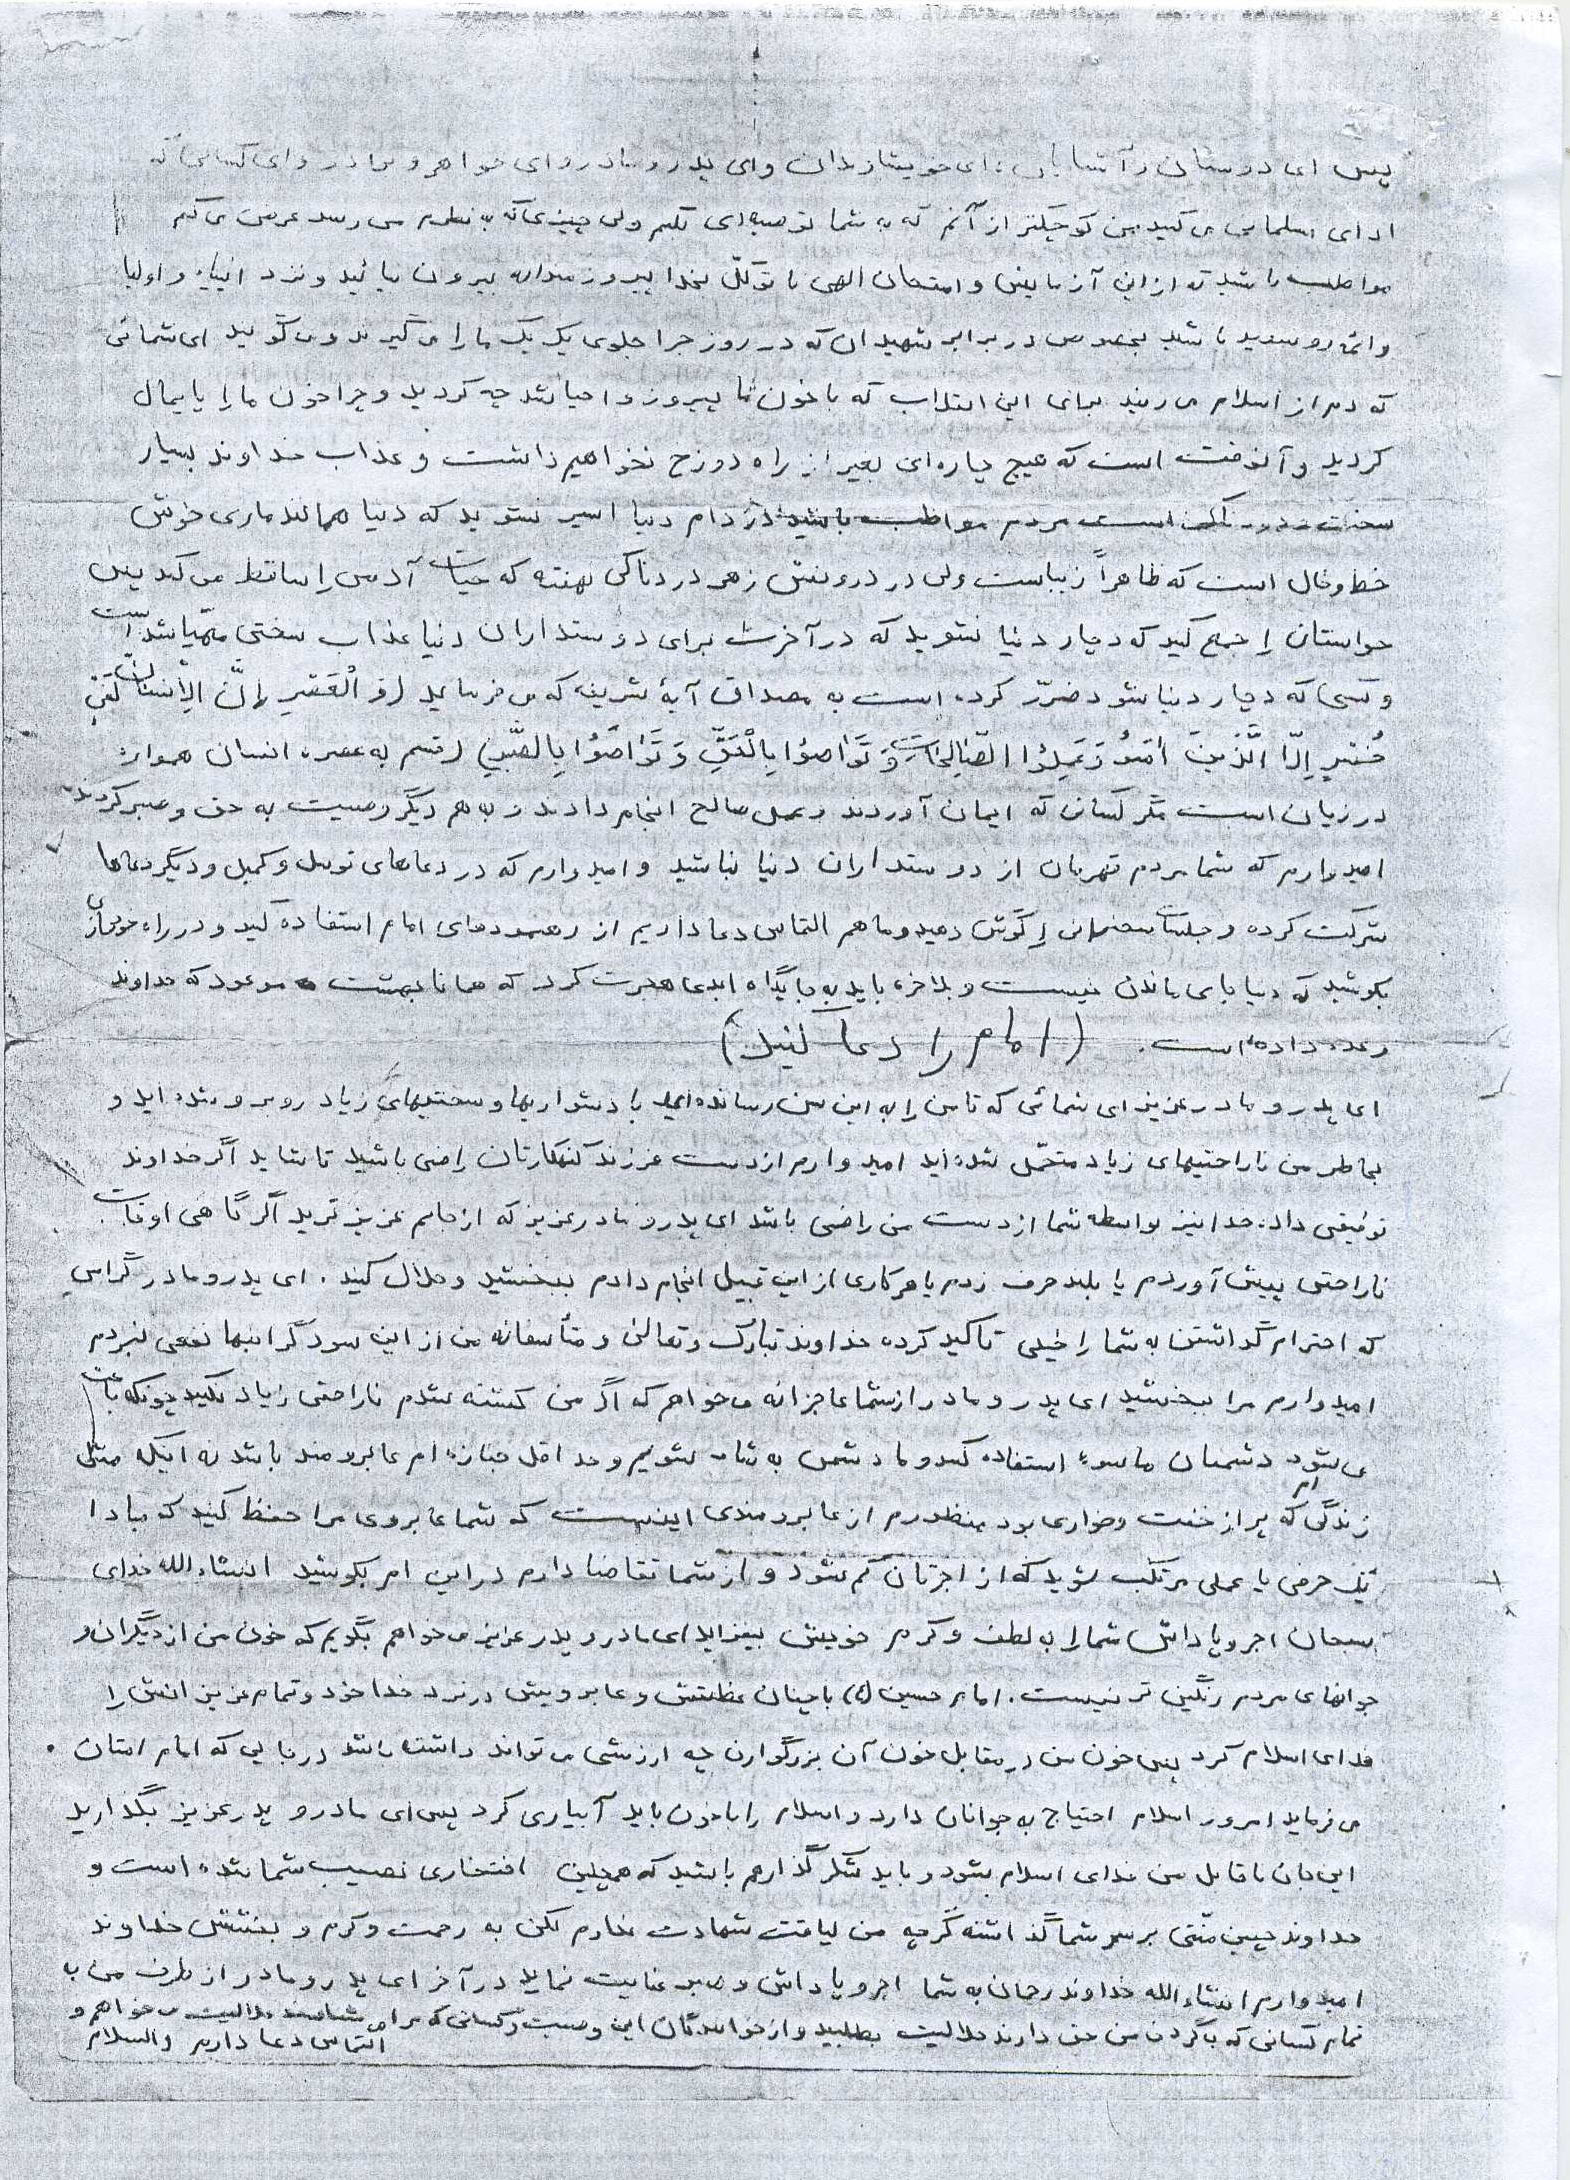 پس ای دوستان و آشنایان و ای خویشاوندان و ای پدر و مادر و ای خواهر و برادر و ای کسانی که
ادای مسلمانی می کنید من کوچکتر از آنم که به شما توصیه ای بکنم ولی چیزی که به نظرم می رسد عرض می کنم
مواظب باشید که از این آزمایش و امتحان الهی با توکّل بخدا پیروزمندانه بیرون بیائید و نزد انبیاء و اولیا
و ائمه روسفید باشید بخصوص در برابر شهیدان که در روز جزا جلوی یک یک ما را می گیرند و می گویند ای شمائی
که دم از اسلام می زنید برای این انقلاب که با خون ما پیروز و احیا شد چه کردید و چرا خون ما را پایمال
کردید و آنوقت است که هیچ چاره ای بغیر از راه دوزخ نخواهیم داشت و عذاب خداوند بسیار
سخت و دردناک است مردم مواظب باشید در دام دنیا اسیر نشوید که دنیا همانند ماری خوش
خط و خال است که ظاهراً زیباست ولی در درونش زهر دردناکی نهفته که حیات آدمی را ساقط می کند پس
حواستان را جمع کنید که دچار دنیا نشوید که در آخرت برای دوستداران دنیا عذاب سختی مهیّا شده است
و کسی که دچار دنیا شود ضرر کرده است به مصداق آیهٔ شریفه که می فرماید (وَ الْعَصْرِ اِنَّ الاِنْسٰانَ لَفی
خُسْرٍ اِلاَّ الَّذینَ اٰمَنُوُ وَ عَمِلُوُا الصّٰالِحٰاتِ وَ تَوٰاصَوُا بِالْحَقِّ وَ تَوٰاصَوُا بِالصَّبْرِ) قسم به عصر، انسان همواره
در زیان است مگر کسانی که ایمان آوردند و عمل صالح انجام دادند و به هم دیگر وصیت به حق و صبر کردند
امیدوارم که شما مردم قهرمان از دوستداران دنیا نباشید و امیدوارم که در دعاهای توسل و کمیل و دیگر دعاها
شرکت کرده و جلسات سخنرانی را گوش دهید و ما هم التماس دعا داریم از رهنمودهای امام استفاده کنید و در راه خودسازی
بکوشید که دنیا جای ماندن نیست و بلاخره باید به جایگاه ابدی هجرت کرد که همانا بهشت موعود که خداوند
وعده داده است. (امام را دعا کنید)
ای پدر و مادر عزیز ای شمائی که تا من را به این سن رسانده اید با دشواریها و سختیهای زیاد روبرو شده اید و
بخاطر من ناراحتیهای زیاد متحمّل شده اید امیدوارم از دست فرزند گنهکارتان راضی باشید تا شاید اگر خداوند
توفیقی داد، خدا نیز بواسطه شما از دست من راضی باشد ای پدر و مادر عزیز که از جانم عزیزترید اگر گاهی اوقات
ناراحتی پیش آوردم یا بلند حرف زدم یا هر کاری از این قبیل انجام دادم ببخشید و حلال کنید. ای پدر و مادر گرامی
که احترام گذاشتن به شما را خیلی تاکید کرده خداوند تبارک و تعالی و متأسفانه من از این سود گرانبها نفعی نبردم
امیدوارم مرا ببخشید ای پدر و مادر از شما عاجزانه می خواهم که اگر من کشته شدم ناراحتی زیاد نکنید چونکه باعث
می شود دشمنان ما سوء استفاده کنند و ما دشمن به شاد نشویم و حداقل جنازه ام عابرومند باشد نه اینکه مثل
زندگی ام که پر از خفت و خواری بود منظورم از عابرومندی اینست که شما عابروی مرا حفظ کنید که مبادا
یک حرفی یا عملی مرتکب شوید که از اجرتان کم شود و از شما تقاضا دارم در این امر بکوشید انشاءالله خدای
سبحان اجر و پاداش شما را به لطف و کرم خویش بیفزاید ای مادر و پدر عزیز می خواهم بگویم که خون من از دیگران و
جوانهای مردم رنگین تر نیست. امام حسین (ع) با چنان عظمتش و عابرویش در نزد خدا خود و تمام عزیزانش را
فدای اسلام کرد پس خون من در مقابل خون آن بزرگواران چه ارزشی می تواند داشته باشد در جایی که امام امتان
می فرماید امروز اسلام احتیاج به جوانان دارد و اسلام را با خون باید آبیاری کرد پس ای مادر و پدر عزیز بگذارید
این جان ناقابل من فدای اسلام بشود و باید شکرگذار هم باشید که همچنین افتخاری نصیب شما شده است و
خداوند چنین منّتی بر سر شما گذاشته گرچه من لیاقت شهادت ندارم لکن به رحمت و کرم و بخشش خداوند
امیدوارم انشاءالله خداوند رحمان به شما اجر و پاداش و صبر عنایت نماید در آخر ای پدر و مادر از طرف من به
تمام کسانی که با گردن من حق دارند حلالیت بطلبید و از خوانندگان این وصیت و کسانی که مرا می شناسند حلالیت می خواهم و
التماس دعا دارم والسلام